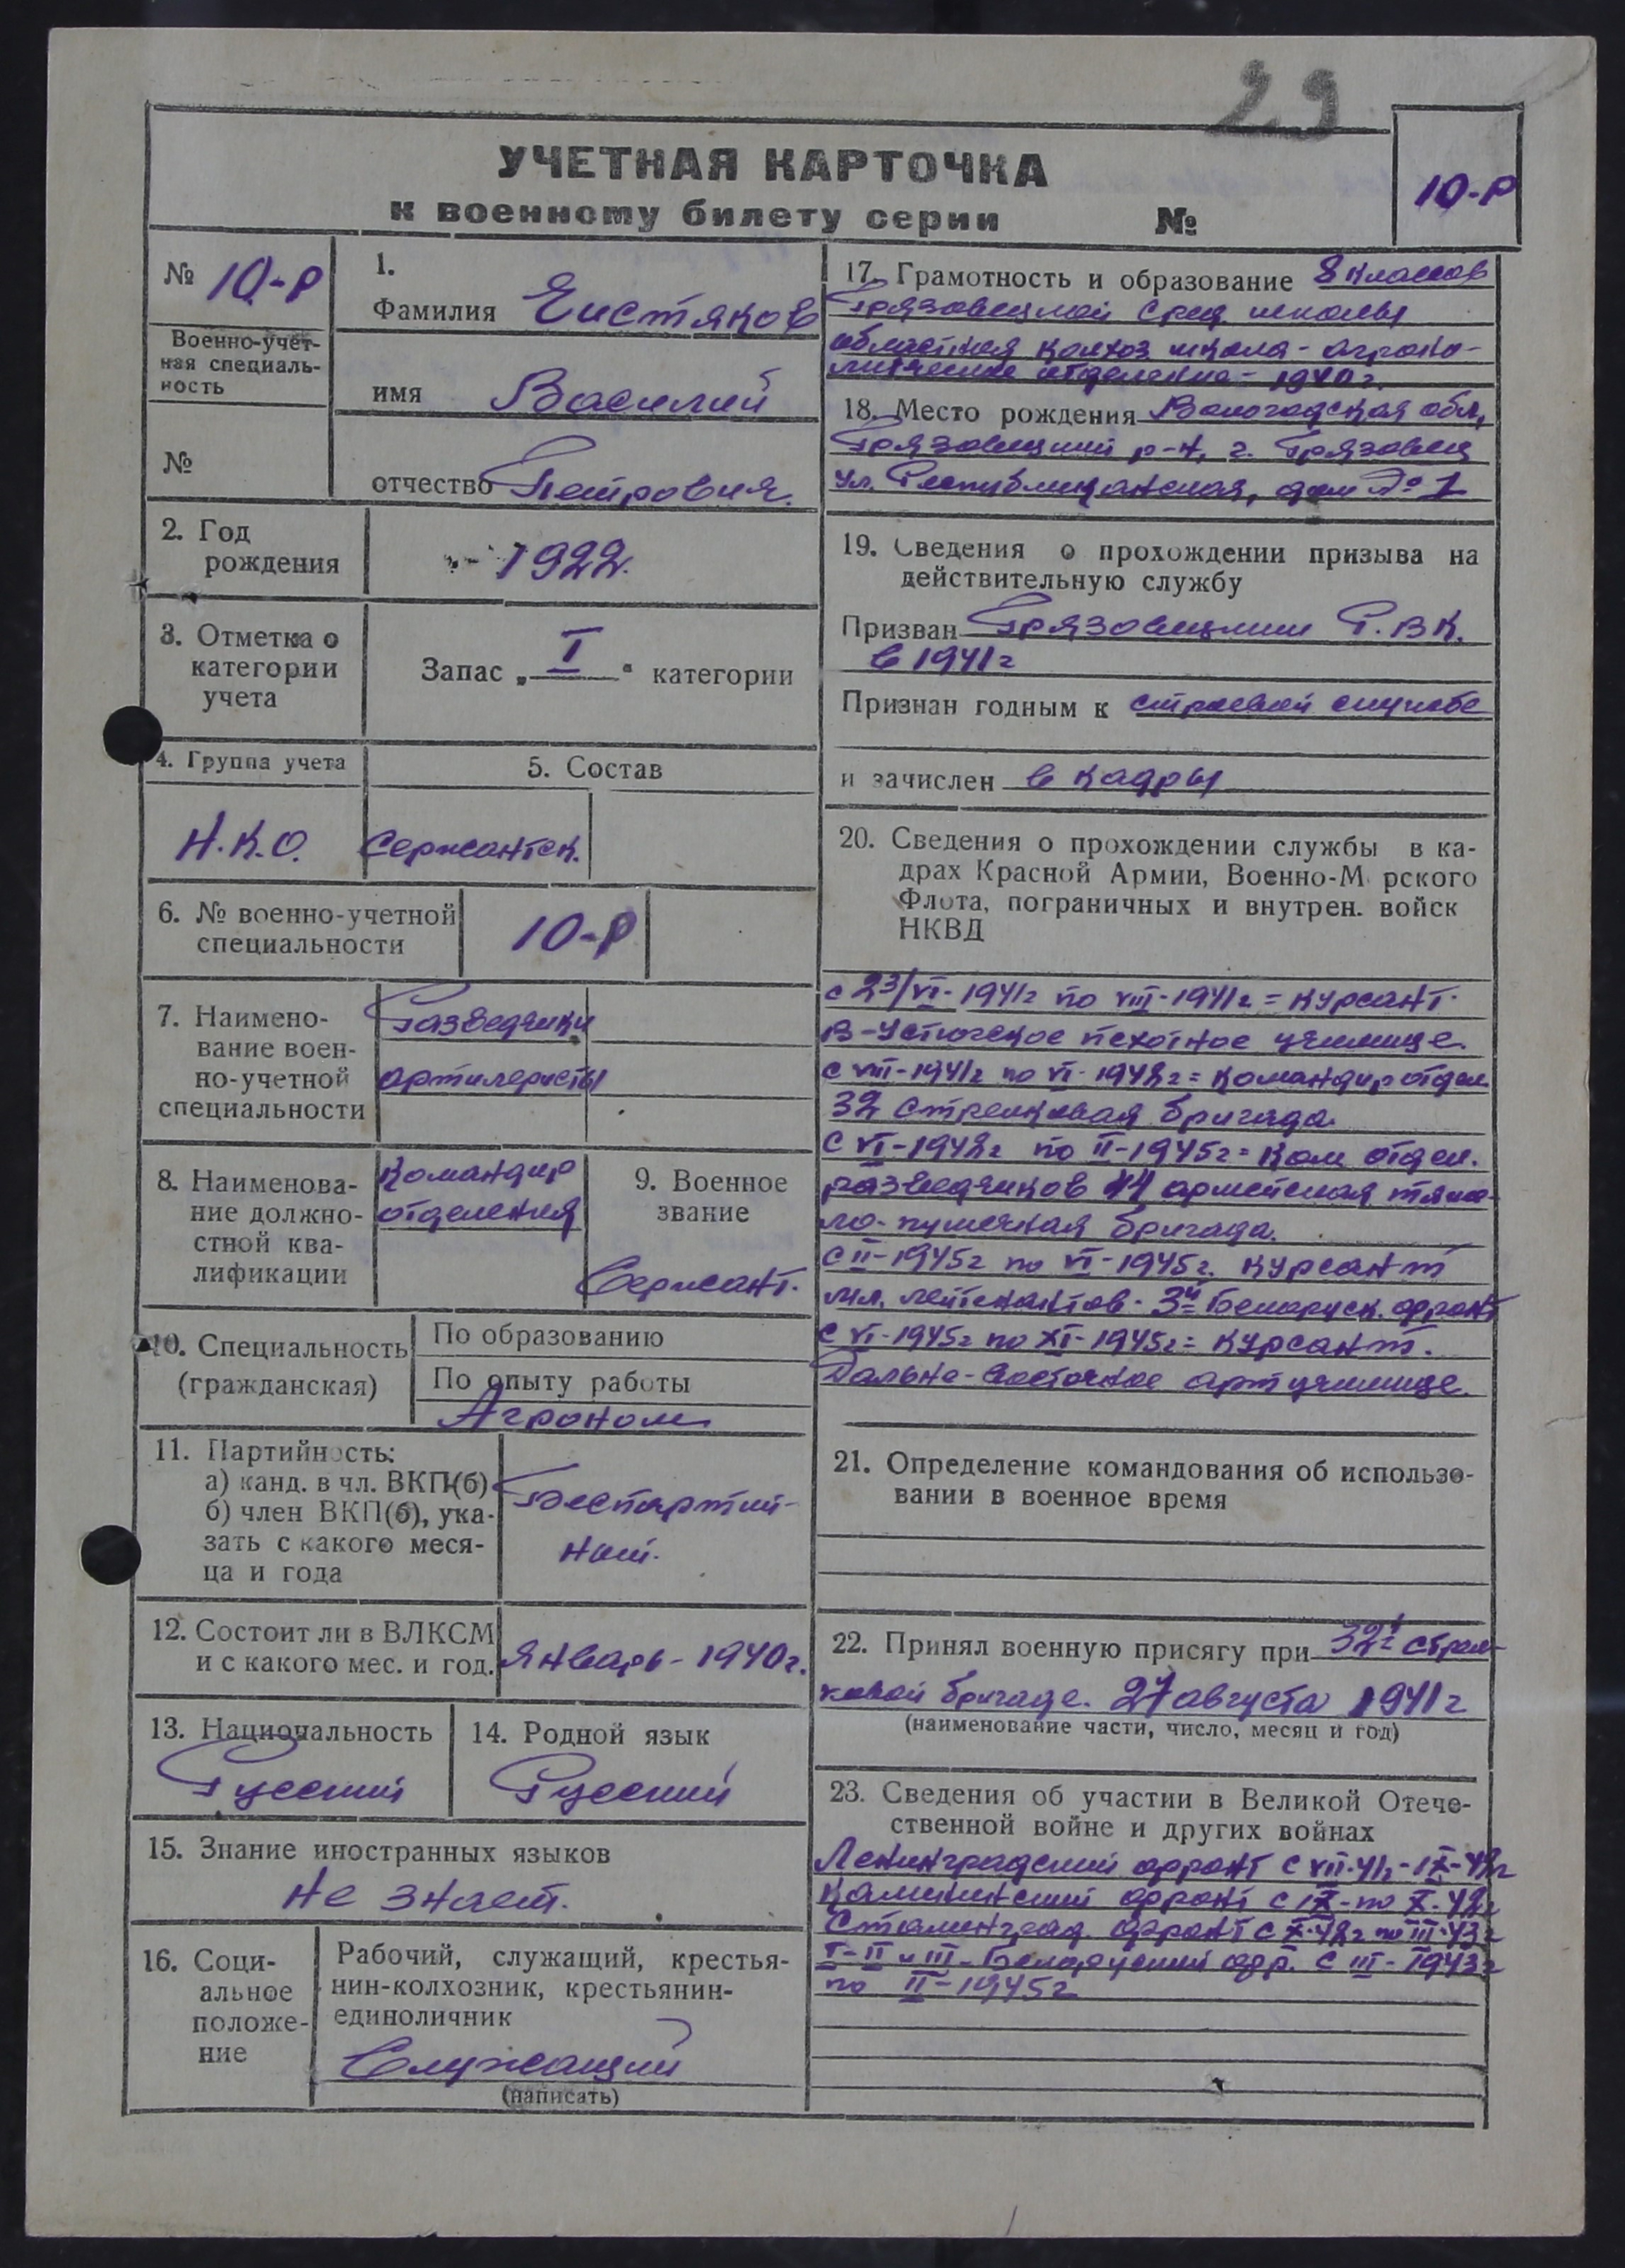 29
УЧЕТНАЯ КАРТОЧКА
к военному билету серии №
10-Р
№ 10-Р
Военно-учет-
ная специаль-
ность
№
1.
Фамилия Чистяков
имя Василий
отчество Петрович.
2. Год
рождения
1922.
3. Отметка о
категории
учета
Запас „ I " категории
4. Группа учета
Н.К.О.
5. Состав
Сержантск.
6. № военно-учетной
специальности
10-Р
7. Наимено-
вание воен-
но-учетной
специальности
Разведчики
артилеристы
8. Наименова-
ние должно-
стной ква-
лификации
Командир
отделения
9. Военное
звание
Сержант.
10. Специальность
(гражданская)
По образованию
По опыту работы
Агроном
11. Партийность:
а) канд. в чл. ВКП(б)
б) член ВКП(б), ука-
зать с какого меся-
ца и года
Беспартий-
ный.
12. Состоит ли в ВЛКСМ
и с какого мес. и год.
Январь - 1940г.
13. Национальность
Русский
14. Родной язык
Русский
15. Знание иностранных языков
Не знает.
16. Соци-
альное
положе-
ние
Рабочий, служащий, крестья-
нин-колхозник, крестьянин-
единоличник
Служащий
(написать)
17. Грамотность и образование 8 классов
Грязовецкой сред. школы
областная колхоз школа - агроно-
мическое отделение - 1940г.
18. Место рождения Вологодская обл,
Грязовецкий р-н, г. Грязовец
ул. Республиканская, дом № 1
19. Сведения о прохождении призыва на
действительную службу
Призван Грязовецким Р.В.К.
в 1941г
Признан годным к строевой службе
и зачислен в кадры
20. Сведения о прохождении службы в ка-
драх Красной Армии, Военно-М рского
Флота, пограничных и внутрен. войск
НКВД
с 23/VI-1941г по VIII-1941г = курсант.
В-Устюгское пехотное училище.
с VIII-1941г по VI-1942г = командир отдел
32 стрелковая бригада.
С VI-1942г по II-1945г = ком отдел.
разведчиков 44 армейская тяже-
ло-пушечная бригада.
с II-1945г по VI-1945г. курсант
мл. лейтенантов - 3й Беларуск. фронт
с VI-1945г по XI-1945г = курсант.
Дальне-Восточное артучилище
21. Определение командования об использо-
вании в военное время
22. Принял военную присягу при 32й стрел-
ковой бригаде. 27 августа 1941г
(наименование части, число, месяц и год)
23. Сведения об участии в Великой Отече-
ственной войне и других войнах
Ленинградский фронт с VII-41г-IX-42г
Калининский фронт с IX-по X-42г
Сталинград. фронт с X-42г по III-43г
I-II и III-Беларуский фр. с III-1943г
по II-1945г